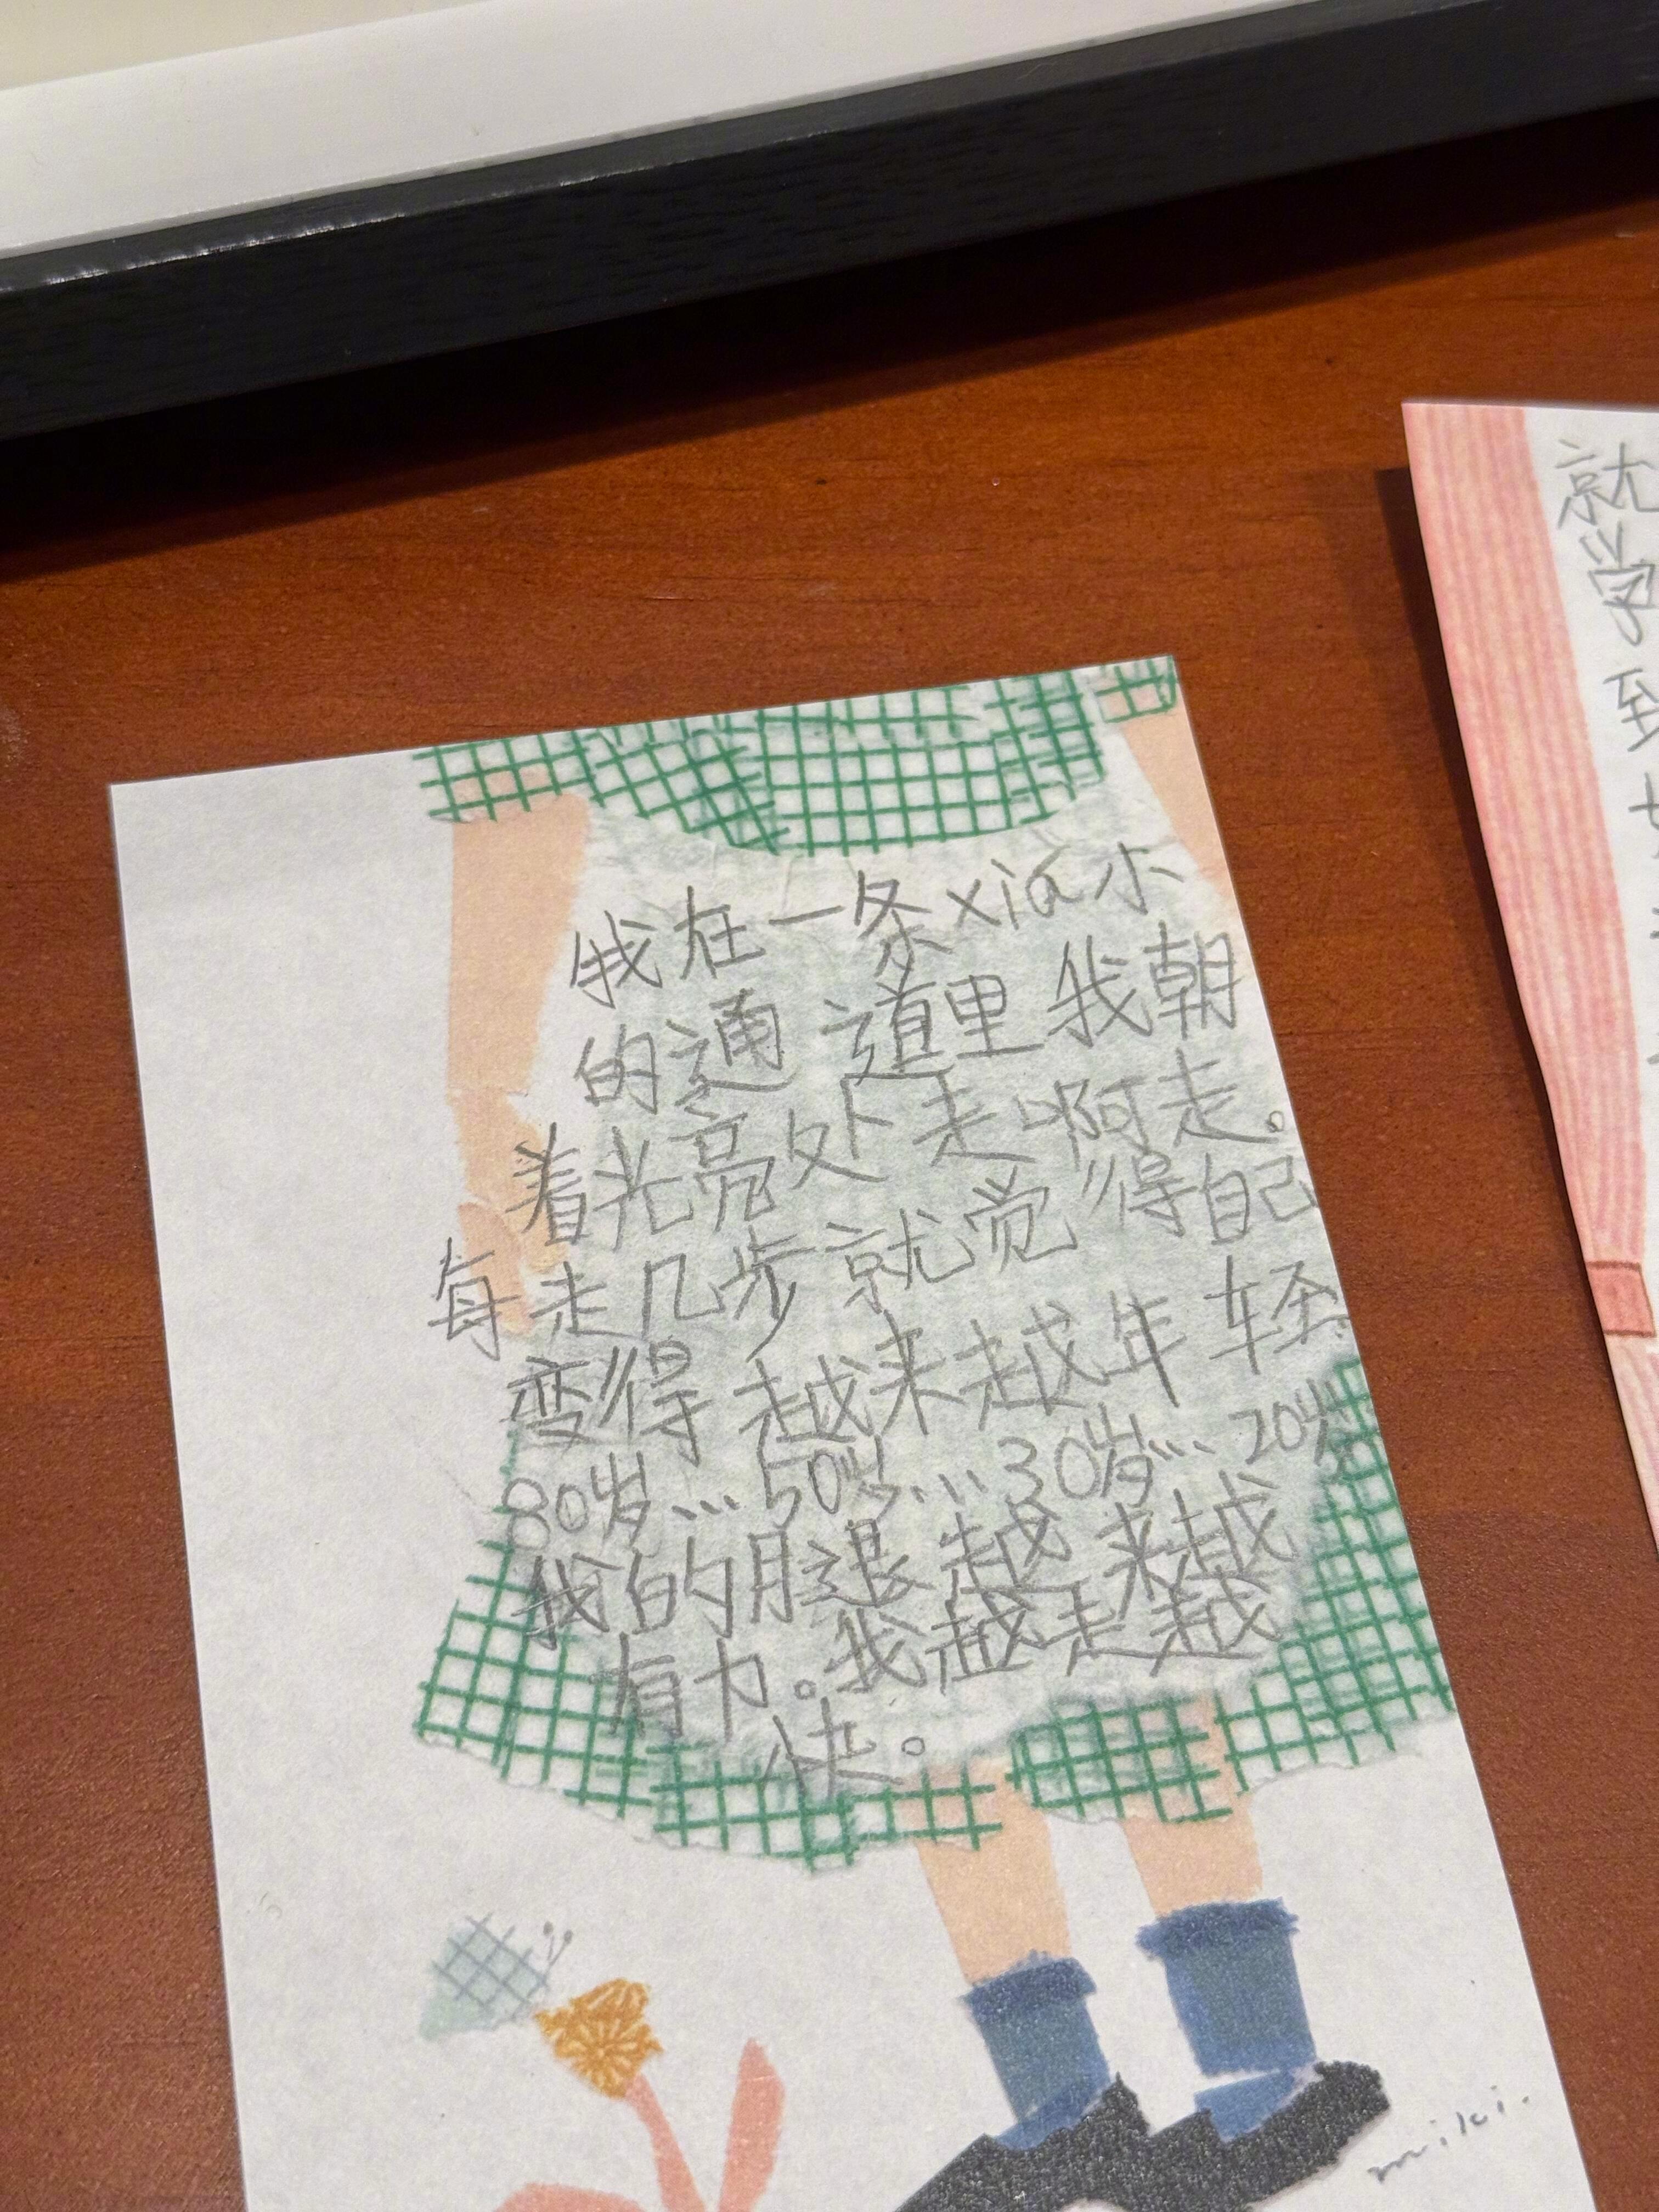 我在一条xia小
的通道里我朝
着光亮处走啊走。
每走几步就觉得自己
变得越来越年轻
80岁…50岁…30岁…20岁
我的腿越来越
有力。我越走越
快。
miki.
就
学
到